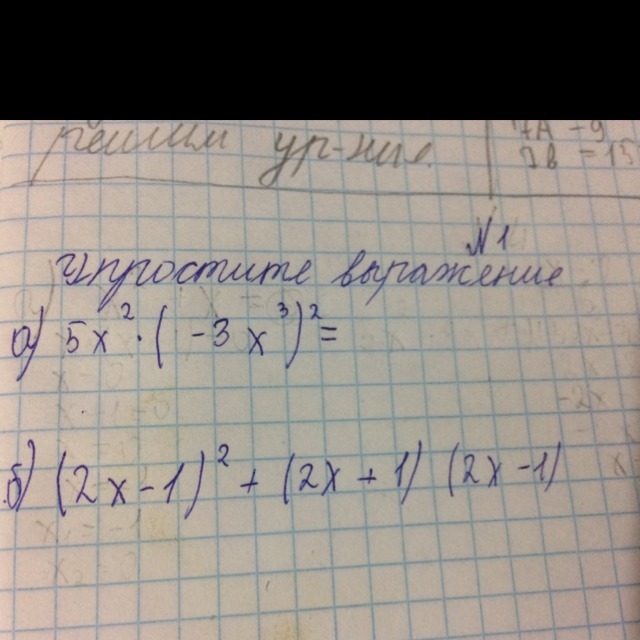 решим ур-ние
7A - 9
= 15
N1
упростите выражение
а) 5x²·(-3x³)²=
б) (2x-1)² + (2x+1)(2x-1)